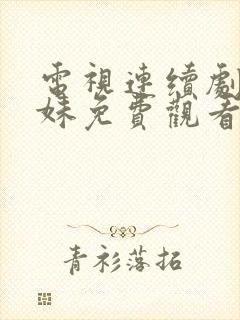 電視連續劇
妹免費觀看
青衫落拓